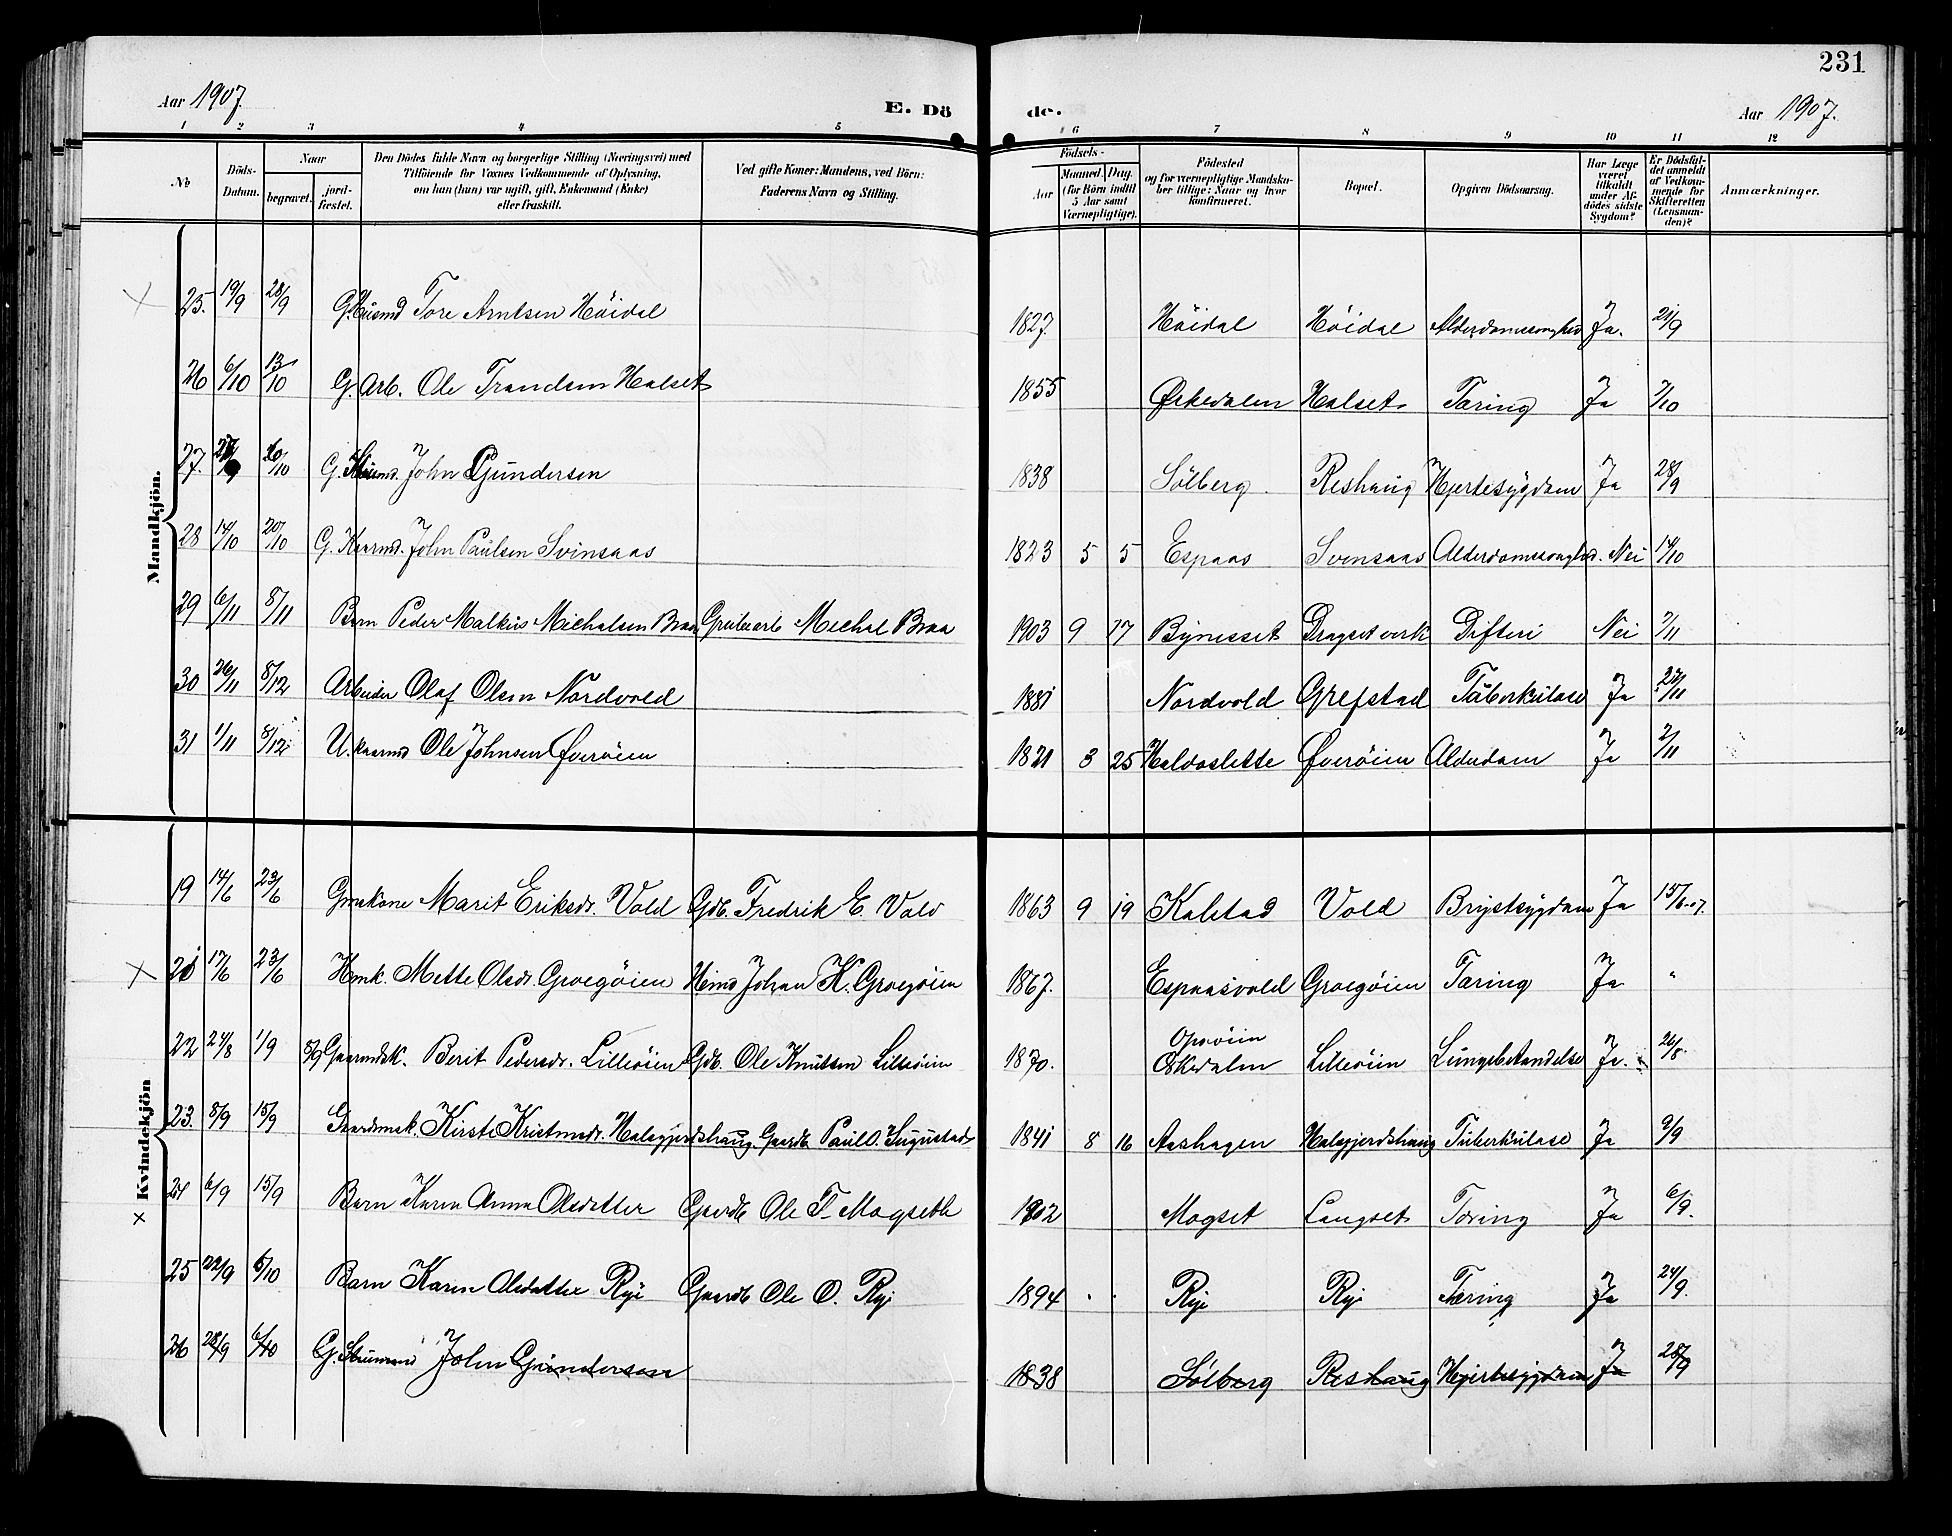 231
Aar 1907. E. Dö de. Aar 1907.
1 2 3 4 5 6 7 8 9 10 11 12
No Döds-Datum. Naar begravet. jordfæstet. Den Dödes fulde Navn og borgerlige Stilling (Næringsvei) med Tilföiende for Voxnes Vedkommende af Oplysning, om han (hun) var ugift, gift, Enkemand (Enke) eller fraskilt. Ved gifte Koner: Mandens, ved Börn: Faderens Navn og Stilling. Födsels- Aar Maaned. Dag. (for Börn indtil 5 Aar samt Værnepligtige). Födested og for værnepligtige Mandskaber tillige: Naar og hvor konfirmeret. Bopæl. Opgiven Dödsaarsag. Har Læge været tilkaldt under Afdödes sidste Sygdom? Er Dödsfaldet anmeldt af Vedkommende for Skifteretten (Lensmanden)? Anmærkninger.
Mandkjön.
25. 19/9 28/9 G. Husmd Tore Arntsen Höidal 1827 Höidal Höidal Alderdomssvaghed Ja. 21/9
26 6/10 13/10 G. Arb. Ole Trondsen Halset 1855 Orkedalen Halset Tæring Ja 7/10
27. 20/10 G. Husmd. John Gundersen 1838 Sölberg Reshaug Hjertesygdom Ja 28/9
28 14/10 20/10 G. Kaarmd. John Paulsen Svinsaas 1823 5 5 Espaas Svinsaas Alderdomssvaghed. Nei 14/10
29 6/11 8/11 Barn Peder Malkus Michalsen Braa Grubearb Michal Braa 1903 9 17 Bynesset Dragset verk Difteri Nei 7/11
30 26/11 8/12 Arbeider Olaf Olsen Nordvold 1881 Nordvold Grefstad Tuberkulose Ja 27/11
31 1/11 8/12 U. kaarmd Ole Johnsen Överöien 1821 3 25 Halvoslette Överöien Alderdom Ja 2/11
Kvindekjön
19 14/6 23/6 Gmskone Marit Eriksdr. Vold Gdb. Fredrik E. Vold 1863 9 19 Kalstad Vold Brystsygdom Ja 15/6-07.
21 17/6 23/6 Hmk. Mette Olsdr. Groegöien Hmd Johan K. Groegöien 1867. Espaasvold Groegöien Tæring Ja "
22 24/8 1/9 Gaarmdsk. Berit Pedersdr. Lilleöien Gdb. Ole Knutsen Lilleöien 1870. Orkedalen Lilleöien Lungebetændelse Ja. 26/8.
23. 8/9 15/9 Gaardmsk. Kirste Kristensdr. Halsgjerdshaug Gaardb. Paul O. 1841 8 16 Aashagen Halsgjerdshaug Tuberkulose Ja 9/9
24 6/9 15/9 Barn Karen Anna Olsdatter Gaardb Ole T. Mogseth 1902 Mogset Langset Tæring Ja 6/9.
25 22/9 6/10 Barn Karen Olsdatter Rye Gaardb Ole O. Rye 1894 Rye Rye Tæring Ja 24/9.
26 28/9 6/10 G. Husmand John Gundersen 1838 Sölberg Reshaug Hjertesygdom Ja 28/9